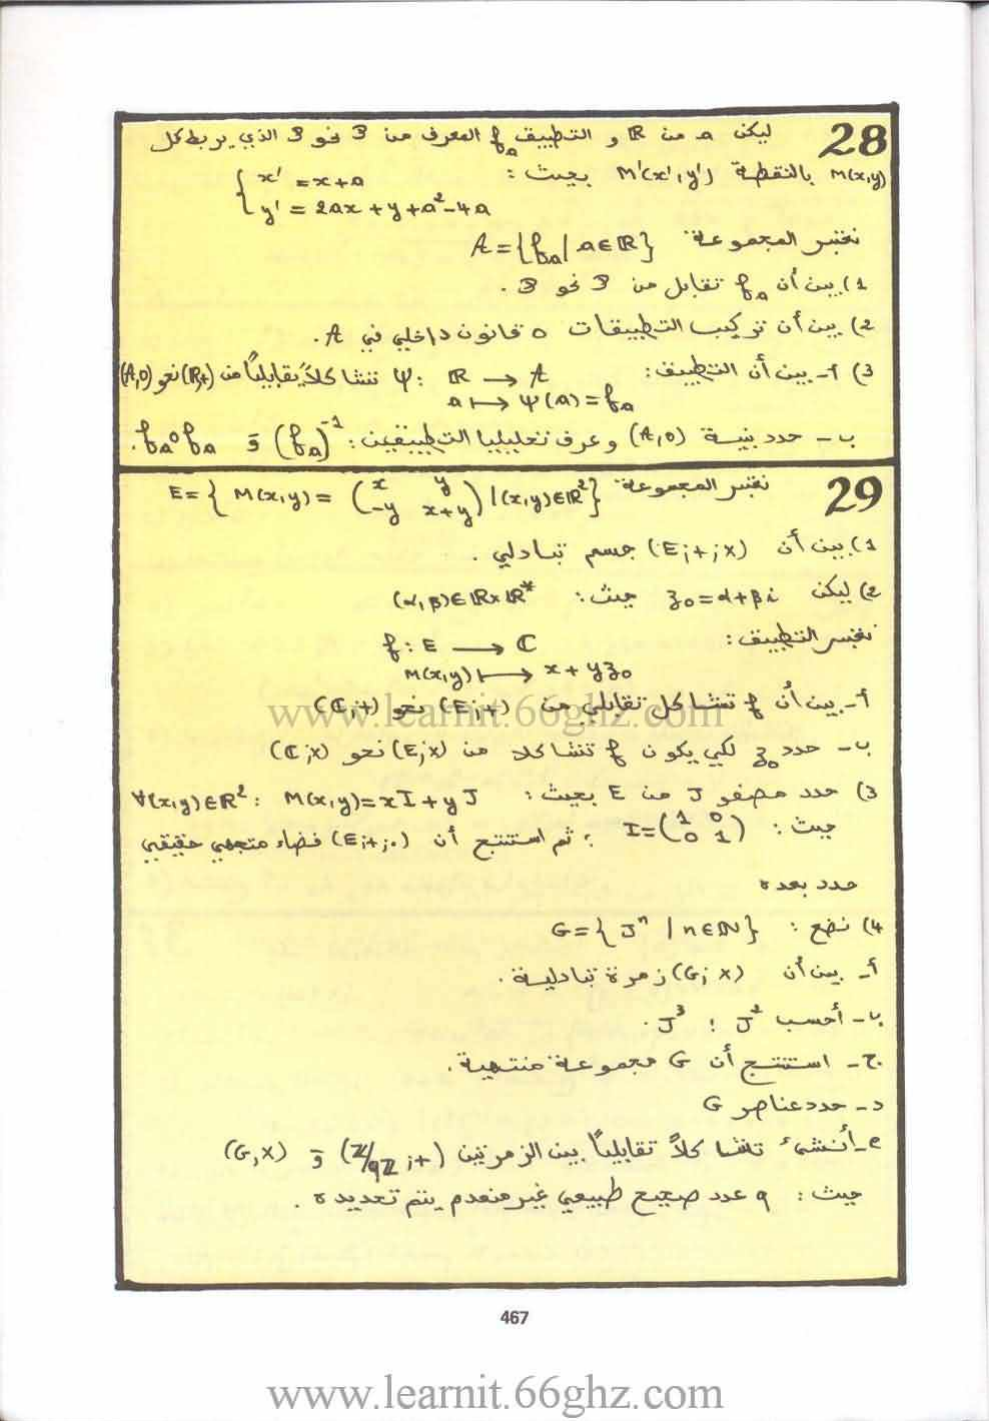 28 ليكن a من ℝ و التطبيق fₐ المعرف من P نحو P الذي يربط كل
M(x,y) بالنقطة M'(x',y') بحيث : { x' = x+a
y' = 2ax + y + a² - 4a
نعتبر المجموعة A = {fₐ | a∈ℝ}
1) بين أن fₐ تقابل من P نحو P .
2) بين أن تركيب التطبيقات o قانون داخلي في A .
3) أ- بين أن التطبيق : ψ : ℝ → A تشاكلاً تقابلياً من (ℝ,+) نحو (A,o)
a ↦ ψ(a) = fₐ
ب - حدد بنية (A,o) و عرف تحليليا التطبيقين : (fₐ)⁻¹ و fₐ o fₐ .
29 نعتبر المجموعة E = { M(x,y) = ( x y ; -y x+y ) / (x,y)∈ℝ² }
1) بين أن (E;+;x) جسم تبادلي .
2) ليكن z₀ = α + βi حيث : (α,β)∈ℝxℝ*
نعتبر التطبيق : f : E → ℂ
M(x,y) ↦ x + y z₀
أ- بين أن f تشاكل تقابلي من (E;+) نحو (ℂ;+)
ب - حدد z₀ لكي يكون f تشاكلا من (E;x) نحو (ℂ;x)
3) حدد مصفو J من E بحيث : ∀(x,y)∈ℝ² : M(x,y) = xI + yJ
حيث : I = ( 1 0 ; 0 1 ) ; ثم استنتج أن (E;+;.) فضاء متجهي حقيقي
حدد بعده
4) نضع : G = { Jⁿ / n∈ℕ }
أ- بين أن (G;x) زمرة تبادلية .
ب - أحسب J² ; J³ .
ج - استنتج أن G مجموعة منتهية .
د - حدد عناصر G
ه - أنشئ تشاكلاً تقابلياً بين الزمرتين (ℤ/qℤ ;+) و (G,x)
حيث : q عدد صحيح طبيعي غير منعدم يتم تحديده .
467
www.learnit.66ghz.com
www.learnit.66ghz.com